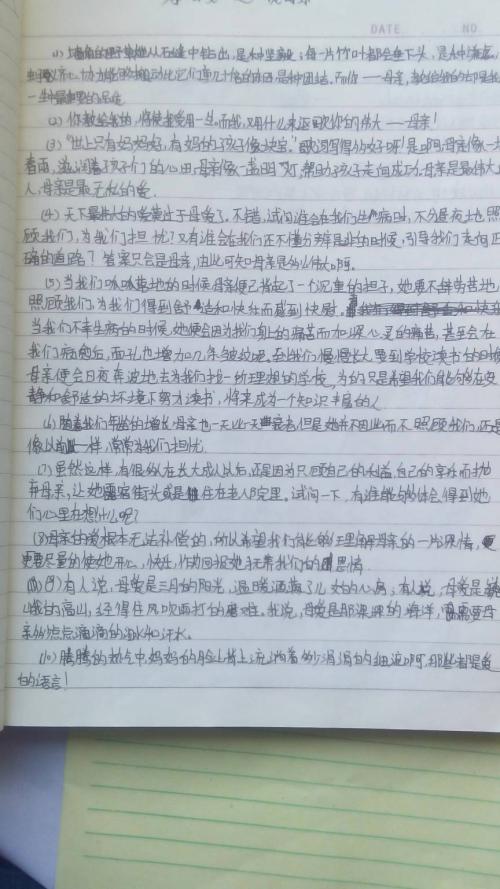 DATE NO
(1) 墙角的野草从石缝中钻出，是种坚毅；每一片竹叶都会垂下头，是种
协力能够搬动比它们重几十倍的东西是种团结。而你——母亲，教给我的却是我
一生中最重要的品质
(2) 你教给我的，将使我受用一生。而我，又用什么来回歌你的伟大——母亲！
(3) "世上只有妈妈好，有妈的孩子像块宝。"歌词写得多好啊！是啊，母亲像一场
春雨，滋润着孩子们的心田；母亲像一盏明灯，帮助孩子走向成功。母亲是最伟大的
人，母亲是最无私的爱。
(4) 天下最伟大的爱莫过于母爱了，不错，试问谁会在我们生病时，不分昼夜地照
顾我们，为我们担忧？又有谁会在我们还不懂分辨是非的时候，引导我们走向正
确的道路？答案只会是母亲，由此可知母亲是多么伟大啊。
(5) 当我们呱呱落地的时候母亲便已背起了一个沉重的担子，她要不辞劳苦地
照顾我们，为我们得到舒适和快乐而感到快慰。
当我们不幸生病的时候，她便会因为我们身上的痛苦而加深心灵的痛苦，甚至会在
我们病愈后，面孔也增加几条皱纹呢。至我们慢慢长大，要到学校读书的时候
母亲便会日夜奔波地去为我们找一所理想的学校，为的只是希望我们能够在安
静和舒适的环境下努力读书，将来成为一个知识丰富的人
(6) 随着我们年龄的增长，母亲也一天比一天衰老，但是她并不因此而不照顾我们，还是
像以前一样，常常为我们担忧。
(7) 虽然这样，有很多人在长大成人以后，还是因为只顾自己的利益，自己的享乐而抛
弃母亲，让她露宿街头或是住在老人院里，试问一下，有谁能够体会得到她
们心里在想什么呢？
(8) 母亲的爱根本无法补偿的，所以希望我们能够理解母亲的一片深情，更
要尽量的使她开心，快乐，作为回报她抚养我们的恩情
(9) 有人说，母爱是三月的阳光，温暖洒满了儿女的心房；有人说，母爱是
的高山，经得住风吹雨打的磨难。我说，母爱是那深深的海洋，需要母
亲多少点点滴滴的泪水和汗水。
(10) 腾腾的热气中妈妈的脸上淌着多少涓涓的细流啊，那些都是爱
的语言！